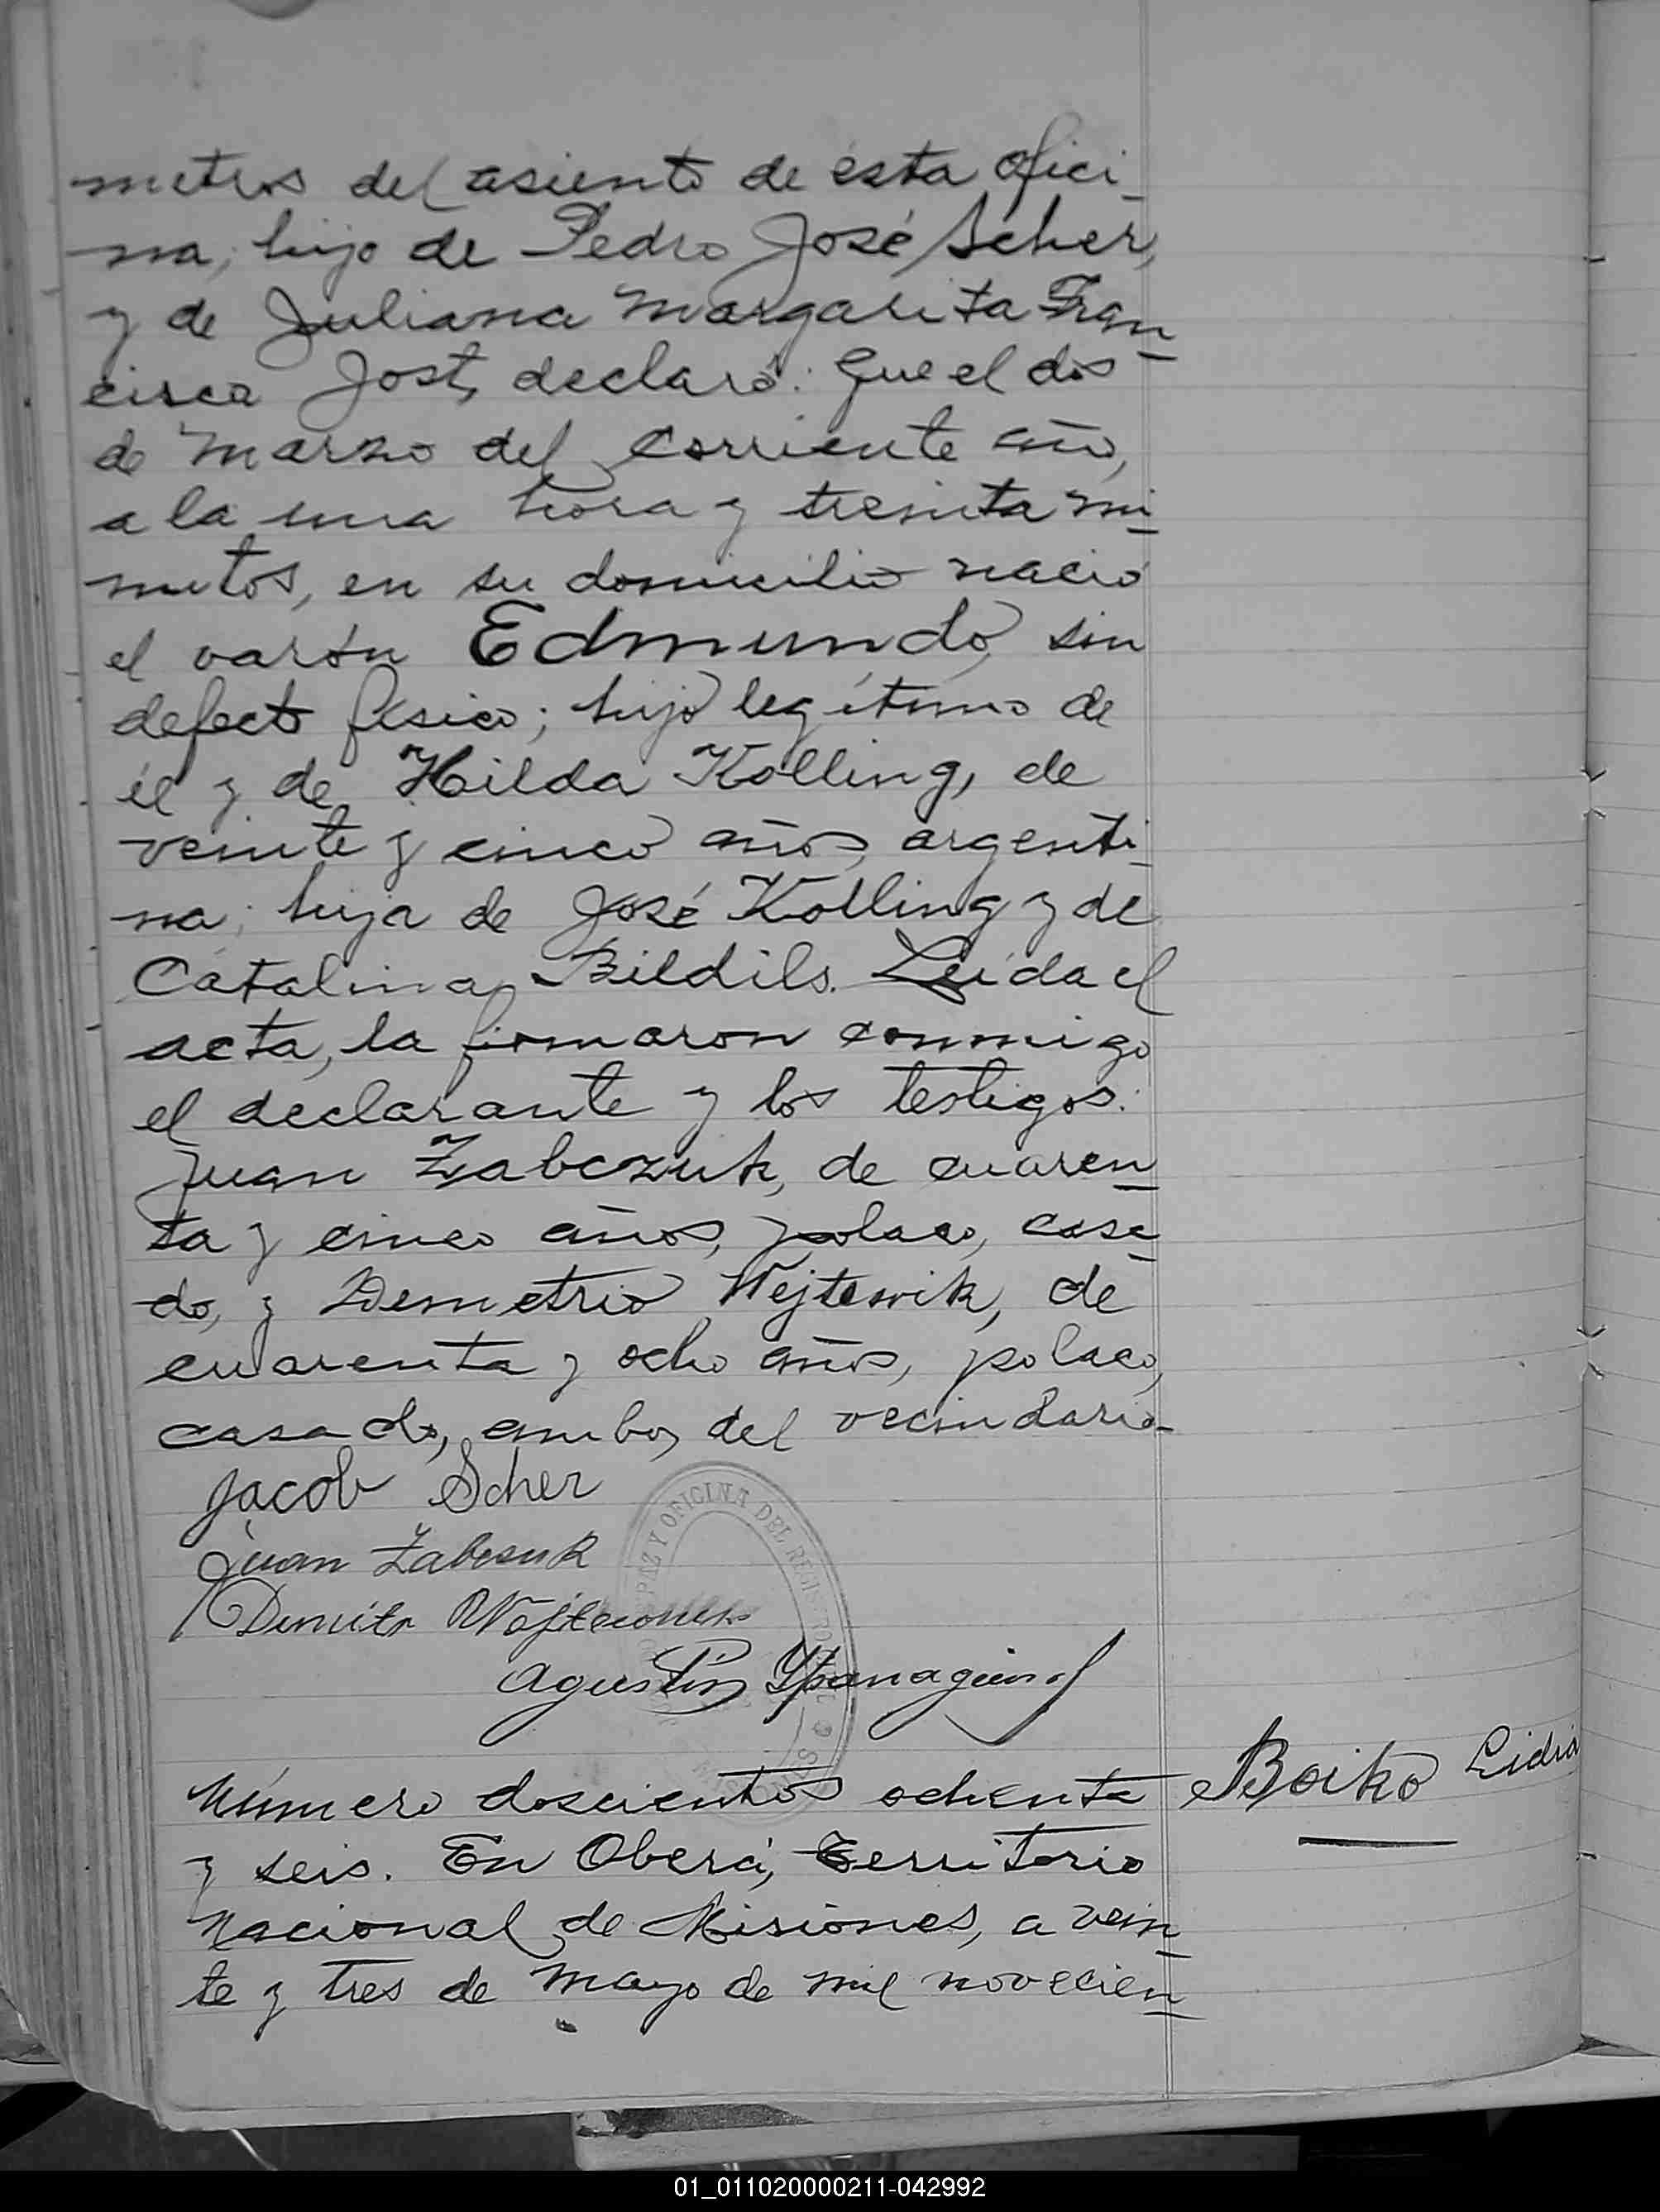 metros del asiento de ésta ofici_
na; hijo de Pedro José Scher,
y de Juliana Margarita Fran_
cisca Jost, declaró: Que el dos
de Marzo del corriente año,
a la una hora y treinta mi_
nutos, en su domicilio nació
el varón Edmundo, sin
defecto fisico; hijo legítimo de
él y de Hilda Kolling, de
veinte y cinco años, argenti_
na; hija de José Kolling y de
Catalina Bildils. Leída el
acta, la firmaron conmigo
el declarante y los testigos:
Juan Zabczuk, de cuaren_
ta y cinco años, polaco, casa_
do, y Demetrio Wejtewik, de
cuarenta y ocho años, polaco,
casado, ambos del vecindario
Jacob Scher
Juan Zabczuk
Dmitr
Agustín
PAZ Y OFICINA DEL REGISTRO
Número doscientos ochenta
y seis. En Oberá, Territorio
Nacional de Misiones, a vein_
te y tres de Mayo de mil novecien_
Boiko Lidia
01_011020000211-042992